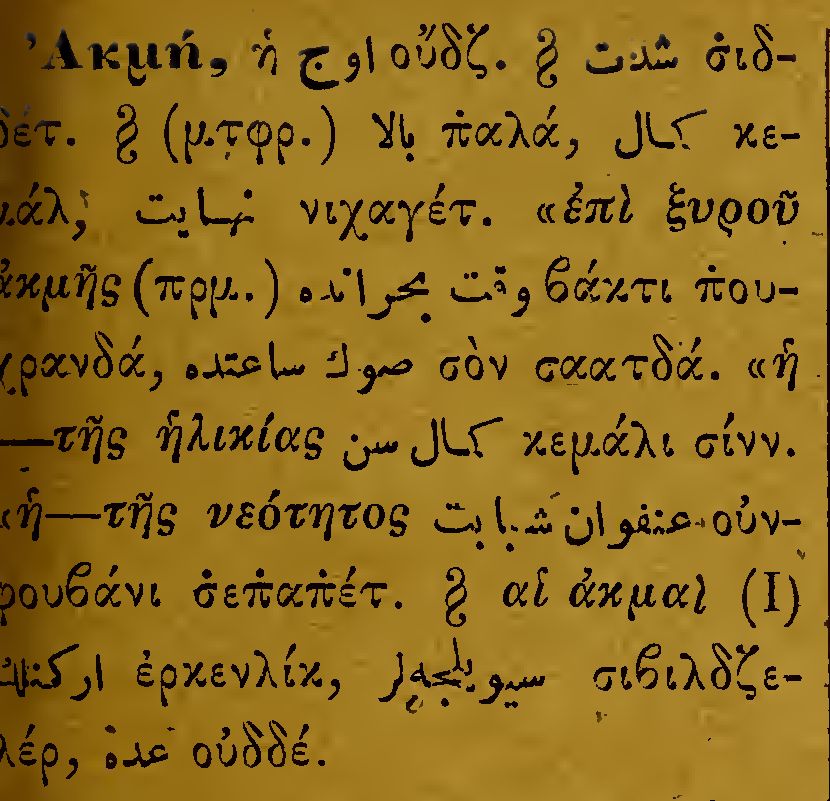 Ἀκμή, ἡ اوج οὔδζ. § شدت σ̇ιδ-
δέτ. § (μ.τφρ.) بالا π̇αλά, كمال κε-
μάλ, نهايت νιχαγέτ. «ἐπὶ ξυροῦ
ἀκμῆς (πρμ.) وقت بحرانده βάκτι π̇ου-
χρανδά, صوك ساعتده σὸν σαατδά. «ἡ
—τῆς ἡλικίας كمال سن κεμάλι σίνν.
«ἡ—τῆς νεότητος عنفوان شبابت οὐν-
φουβάνι σ̇επ̇απ̇έτ. § αἱ ἀκμαὶ (Ι)
اركنلك ἐρκενλίκ, سيويلجه‌لر σιβιλδζε-
λέρ, عده οὐδδέ.